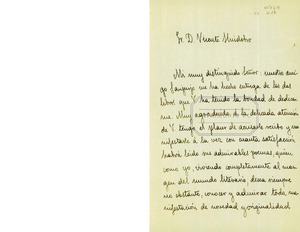 Sr. D. Vicente Huidobro
Mi muy distinguido Señor: nuestro ami-
go Sanjurjo me ha hecho entrega de los dos
libros que V. ha tenido la bondad de dedicar-
me. Muy agradecido, a la delicada atención
de V. tengo el placer de acusarle recibo y ma-
nifestarle a la vez con cuanta satisfacción
habré leido sus admirables poemas, quien
como yo, viviendo completamente al mar-
gen del mundo literario desea siempre
no obstante, conocer y admirar toda ma-
nifestación de novedad y originalidad